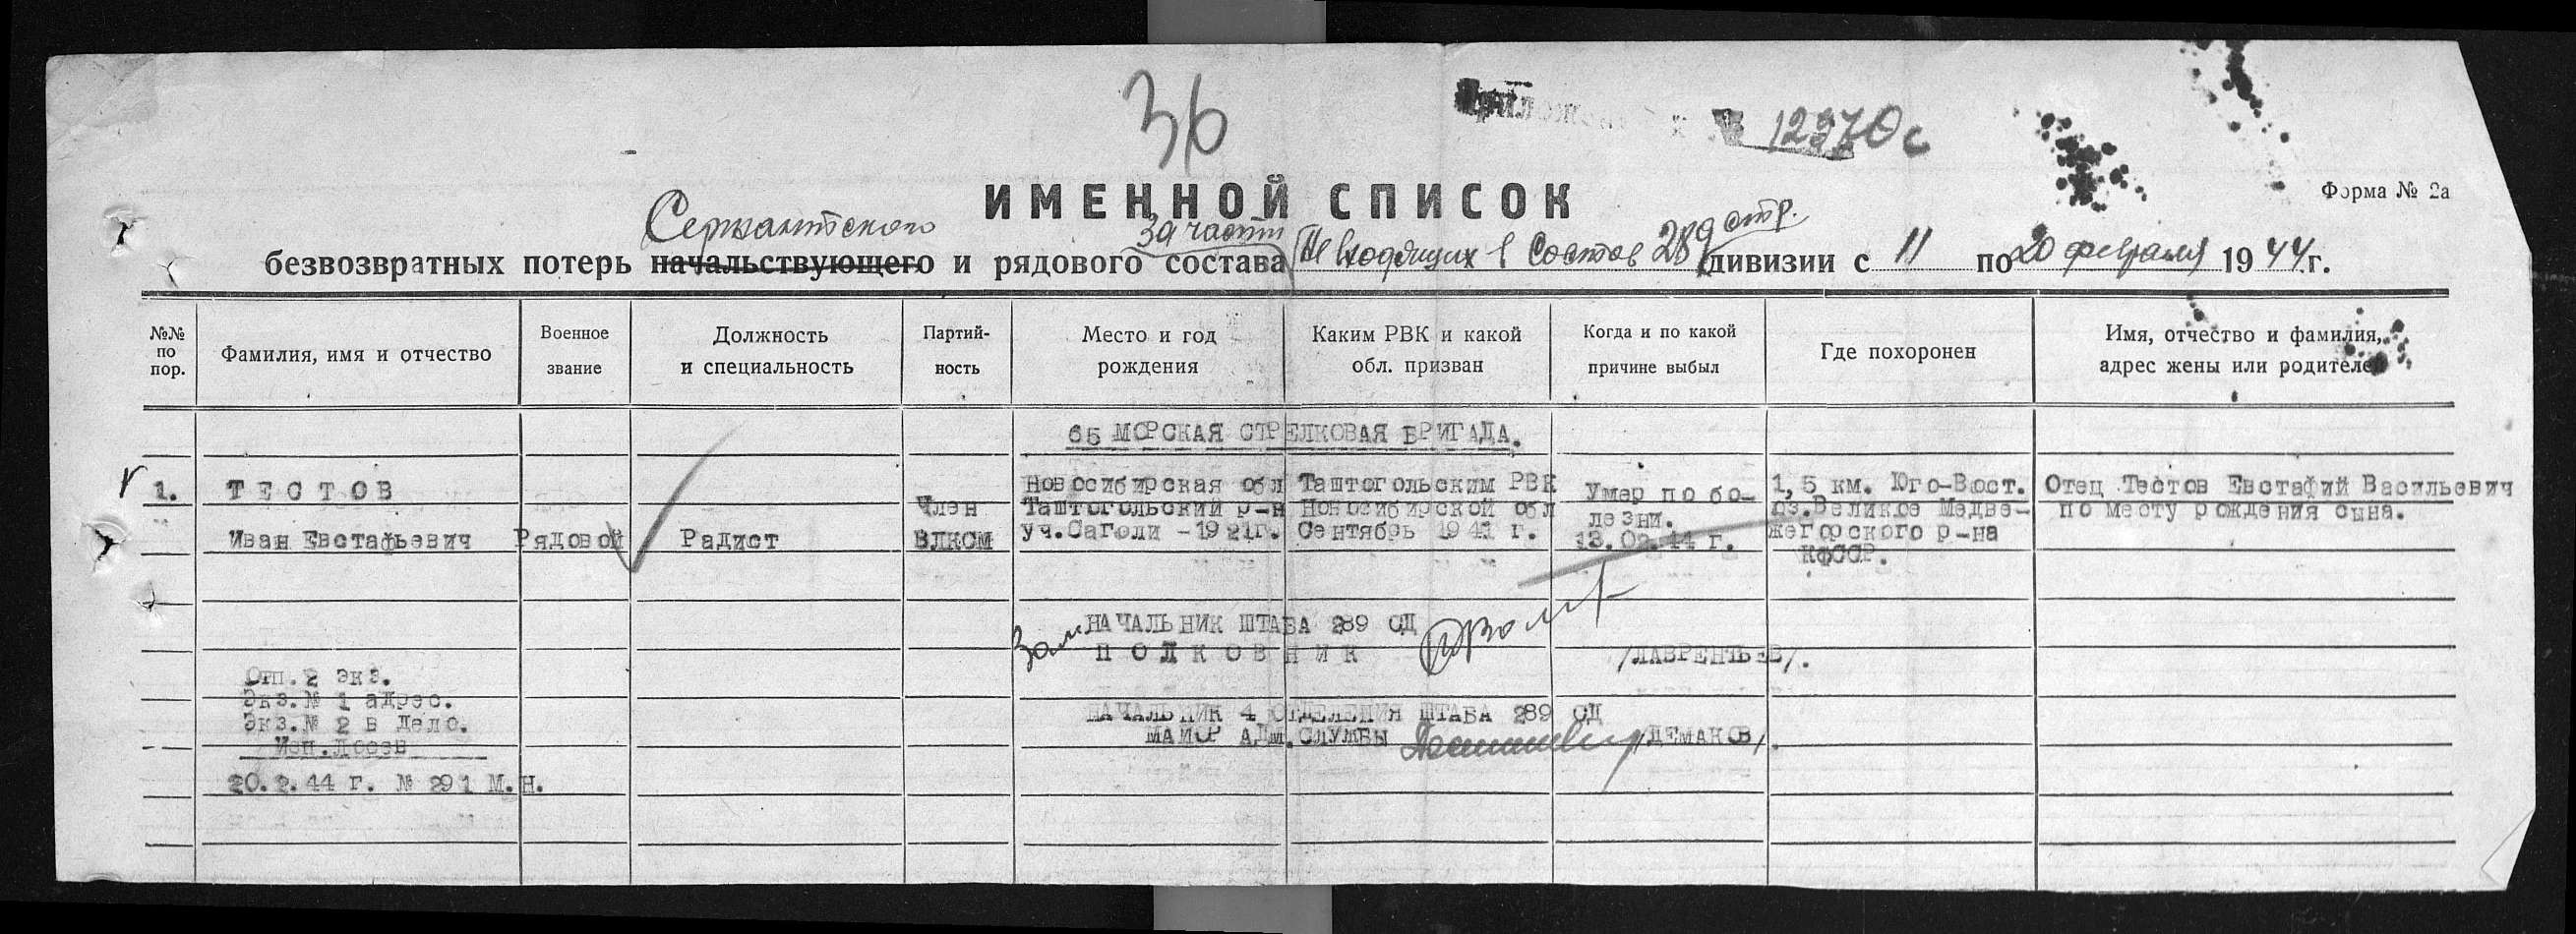 36
№ 12370с
ИМЕННОЙ СПИСОК
Форма № 2а
Сержантского за части не входящих в состав 289 стр.
безвозвратных потерь начальствующего и рядового состава дивизии с 11 по 20 февраля 1944 г.
№№ по пор.
Фамилия, имя и отчество
Военное звание
Должность и специальность
Партий-
ность
Место и год рождения
Каким РВК и какой обл. призван
Когда и по какой причине выбыл
Где похоронен
Имя, отчество и фамилия, адрес жены или родителей
65 МОРСКАЯ СТРЕЛКОВАЯ БРИГАДА.
1.
ТЕСТОВ
Иван Евстафьевич
Рядовой
Радист
Член
ВЛКСМ
Новосибирская обл
Таштогольский р-н
уч.Саголи -1921г.
Таштогольским РВК
Новосибирской обл
Сентябрь 1941 г.
Умер по бо-
лезни.
13.02.44 г.
1,5 км. Юго-Вост.
оз.Великое Медве-
жегорского р-на
КФССР.
Отец Тестов Евстафий Васильевич
по месту рождения сына.
Зам. НАЧАЛЬНИК ШТАБА 289 СД
ПОЛКОВНИК
/ЛАВРЕНТЬЕВ/.
НАЧАЛЬНИК 4 ОТДЕЛЕНИЯ ШТАБА 289 СД
МАЙОР АДМ.СЛУЖБЫ
/ДЕМАКОВ/.
Отп.2 экз.
Экз.№ 1 адрес.
Экз.№ 2 в дело.
Исп.Лосев
20.2.44 г. № 291 М.Н.